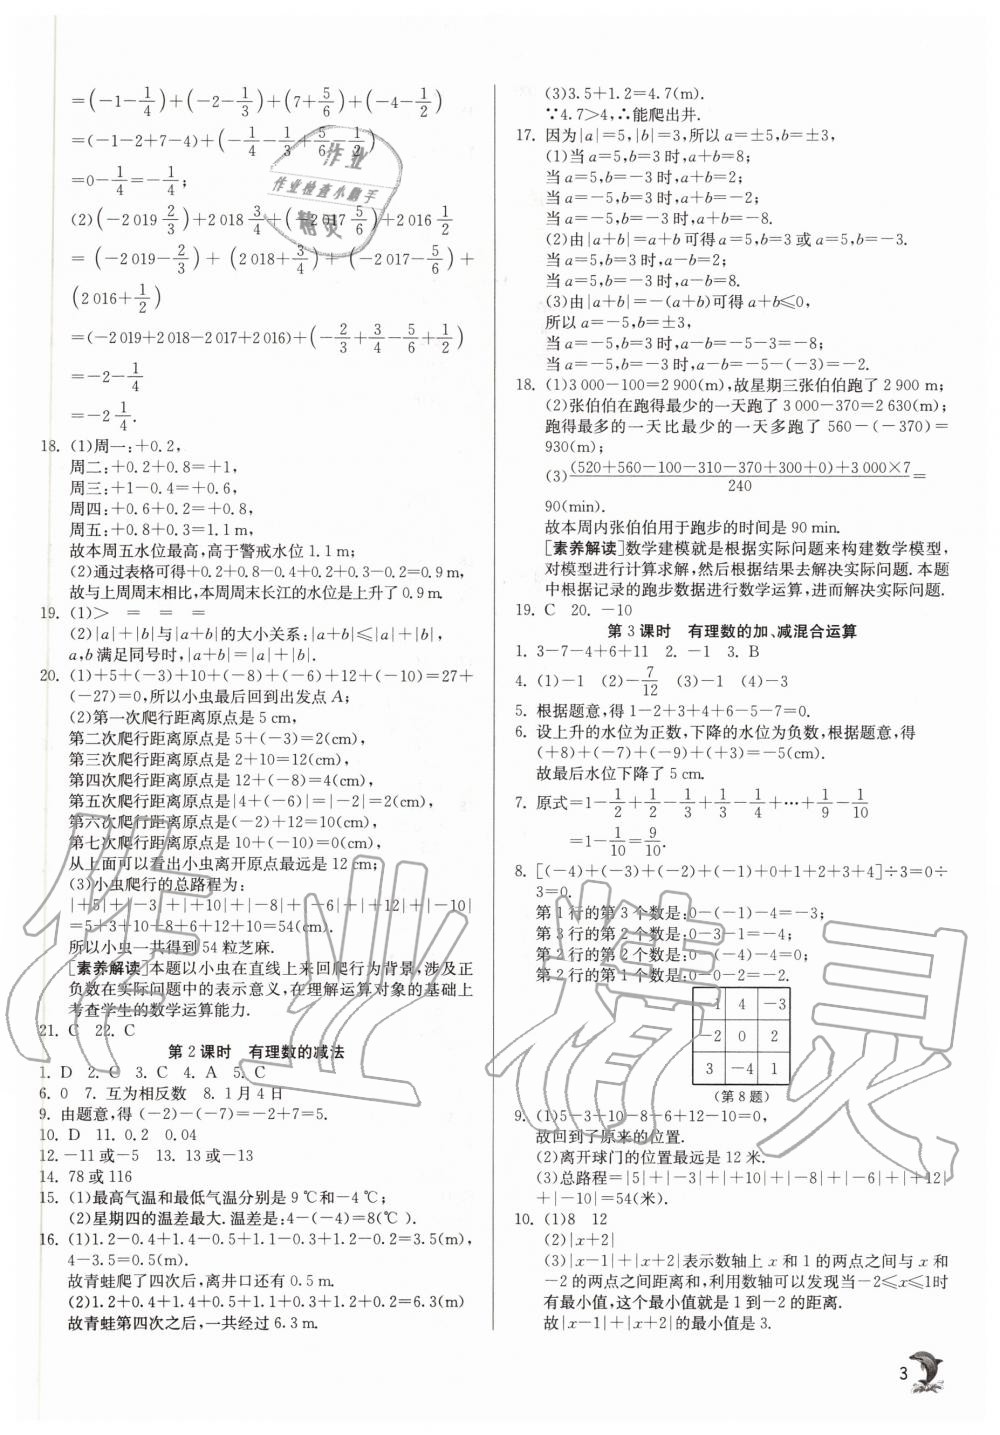 =(-1-1/4)+(-2-1/3)+(7+5/6)+(-4-1/2)
=(-1-2+7-4)+(-1/4-1/3+5/6-1/2)
=0-1/4=-1/4;
(2)(-2 019 2/3)+2 018 3/4+(-2 017 5/6)+2 016 1/2
=(-2 019-2/3)+(2 018+3/4)+(-2 017-5/6)+
(2 016+1/2)
=(-2 019+2 018-2 017+2 016)+(-2/3+3/4-5/6+1/2)
=-2-1/4
=-2 1/4.
18. (1)周一:+0.2,
周二:+0.2+0.8=+1,
周三:+1-0.4=+0.6,
周四:+0.6+0.2=+0.8,
周五:+0.8+0.3=1.1 m,
故本周五水位最高,高于警戒水位 1.1 m;
(2)通过表格可得+0.2+0.8-0.4+0.2+0.3-0.2=0.9 m,
故与上周周末相比,本周周末长江的水位是上升了 0.9 m.
19. (1)> = = =
(2)|a|+|b|与|a+b|的大小关系:|a+b|≤|a|+|b|,
a,b 满足同号时,|a+b|=|a|+|b|.
20. (1)+5+(-3)+10+(-8)+(-6)+12+(-10)=27+
(-27)=0,所以小虫最后回到出发点 A;
(2)第一次爬行距离原点是 5 cm,
第二次爬行距离原点是 5+(-3)=2(cm),
第三次爬行距离原点是 2+10=12(cm),
第四次爬行距离原点是 12+(-8)=4(cm),
第五次爬行距离原点是|4+(-6)|=|-2|=2(cm),
第六次爬行距离原点是(-2)+12=10(cm),
第七次爬行距离原点是 10+(-10)=0(cm),
从上面可以看出小虫离开原点最远是 12 cm;
(3)小虫爬行的总路程为:
|+5|+|-3|+|+10|+|-8|+|-6|+|+12|+|-10|
=5+3+10+8+6+12+10=54(cm).
所以小虫一共得到 54 粒芝麻.
[素养解读]本题以小虫在直线上来回爬行为背景,涉及正
负数在实际问题中的表示意义,在理解运算对象的基础上
考查学生的数学运算能力.
21. C 22. C
第 2 课时 有理数的减法
1. D 2. C 3. C 4. A 5. C
6. 0 7. 互为相反数 8. 1 月 4 日
9. 由题意,得(-2)-(-7)=-2+7=5.
10. D 11. 0.2 0.04
12. -11 或-5 13. 13 或-13
14. 78 或 116
15. (1)最高气温和最低气温分别是 9 ℃和-4 ℃;
(2)星期四的温差最大.温差是:4-(-4)=8(℃).
16. (1)1.2-0.4+1.4-0.5+1.1-0.3+1.2-0.2=3.5(m),
4-3.5=0.5(m).
故青蛙爬了四次后,离井口还有 0.5 m.
(2)1.2+0.4+1.4+0.5+1.1+0.3+1.2+0.2=6.3(m)
故青蛙第四次之后,一共经过 6.3 m.
(3)3.5+1.2=4.7(m).
∵4.7>4,∴能爬出井.
17. 因为|a|=5,|b|=3,所以 a=±5,b=±3,
(1)当 a=5,b=3 时,a+b=8;
当 a=5,b=-3 时,a+b=2;
当 a=-5,b=3 时,a+b=-2;
当 a=-5,b=-3 时,a+b=-8.
(2)由|a+b|=a+b 可得 a=5,b=3 或 a=5,b=-3.
当 a=5,b=3 时,a-b=2;
当 a=5,b=-3 时,a-b=8.
(3)由|a+b|=-(a+b)可得 a+b≤0,
所以 a=-5,b=±3,
当 a=-5,b=3 时,a-b=-5-3=-8;
当 a=-5,b=-3 时,a-b=-5-(-3)=-2.
18. (1)3 000-100=2 900(m),故星期三张伯伯跑了 2 900 m;
(2)张伯伯在跑得最少的一天跑了 3 000-370=2 630(m);
跑得最多的一天比最少的一天多跑了 560-(-370)=
930(m);
(3)(520+560-100-310-370+300+0)+3 000×7/240=
90(min).
故本周内张伯伯用于跑步的时间是 90 min.
[素养解读]数学建模就是根据实际问题来构建数学模型,
对模型进行计算求解,然后根据结果去解决实际问题.本题
中根据记录的跑步数据进行数学运算,进而解决实际问题.
19. C 20. -10
第 3 课时 有理数的加、减混合运算
1. 3-7-4+6+11 2. -1 3. B
4. (1)-1 (2)-7/12 (3)-1 (4)-3
5. 根据题意,得 1-2+3+4+6-5-7=0.
6. 设上升的水位为正数,下降的水位为负数,根据题意,得
(+8)+(-7)+(-9)+(+3)=-5(cm).
故最后水位下降了 5 cm.
7. 原式=1-1/2+1/2-1/3+1/3-1/4+…+1/9-1/10
=1-1/10=9/10.
8. [(-4)+(-3)+(-2)+(-1)+0+1+2+3+4]÷3=0÷
3=0.
第 1 行的第 3 个数是:0-(-1)-4=-3;
第 3 行的第 2 个数是:0-3-1=-4;
第 2 行的第 2 个数是:0-(-4)-4=0;
第 2 行的第 1 个数是:0-0-2=-2.
-1 4 -3
-2 0 2
3 -4 1
(第 8 题)
9. (1)5-3+10-8-6+12-10=0,
故回到了原来的位置.
(2)离开球门的位置最远是 12 米.
(3)总路程=|5|+|-3|+|+10|+|-8|+|-6|+|+12|
+|-10|=54(米).
10. (1)8 12
(2)|x+2|
(3)|x-1|+|x+2|表示数轴上 x 和 1 的两点之间与 x 和
-2 的两点之间距离和,利用数轴可以发现当-2≤x≤1时
有最小值,这个最小值就是 1 到-2 的距离.
故|x-1|+|x+2|的最小值是 3.
3
作业
作业检查小助手
精灵
作业精灵